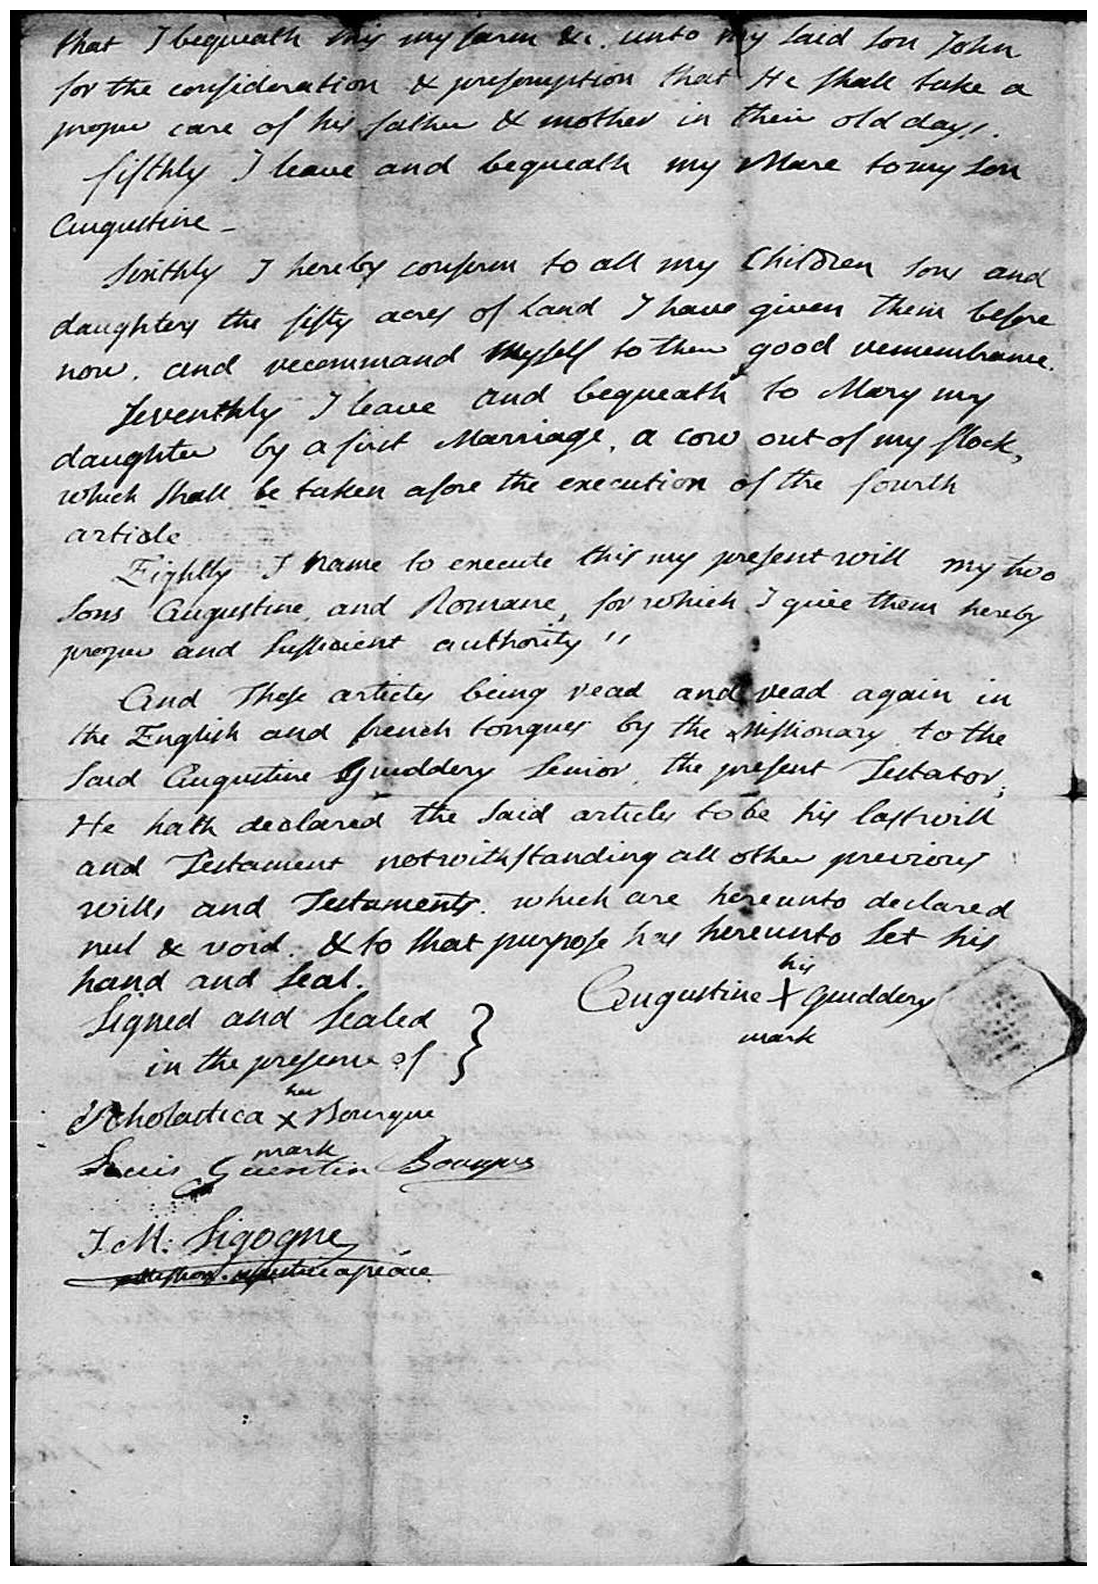 that I bequeath this my farm &c. unto my said son John
for the consideration & presomption that He shall take a
proper care of his father & mother in their old days.
fifthly I leave and bequeath my Mare to my son
Augustine_
Sixthly I hereby confirm to all my Children sons and
daughters the fifty acres of Land I have given them before
now. and recommand Myself to their good remembrance.
Seventhly I leave and bequeath to Mary my
daughter by a first Marriage, a cow out of my flock,
which shall be taken afore the execution of the fourth
article
Eightly I name to execute this my present will my two
sons Augustine, and Romane, for which I give them hereby
proper and sufficient authority "
And These articles being read and read again in
the English and french tongues by the Missionary to the
said Augustine Guiddery senior, the present Testator,
He hath declared the said articles to be his last will
and Testament notwithstanding all other previous
wills and Testaments. which are hereunto declared
nul & void. & to that purpose has hereunto set his
hand and seal.
his
Augustine X Guiddery
mark
Signed and sealed }
in the presence of
her
Scholastica X Bourque
mark
Louis Quentin Bourque
J. M: Sigogne
justice a peace